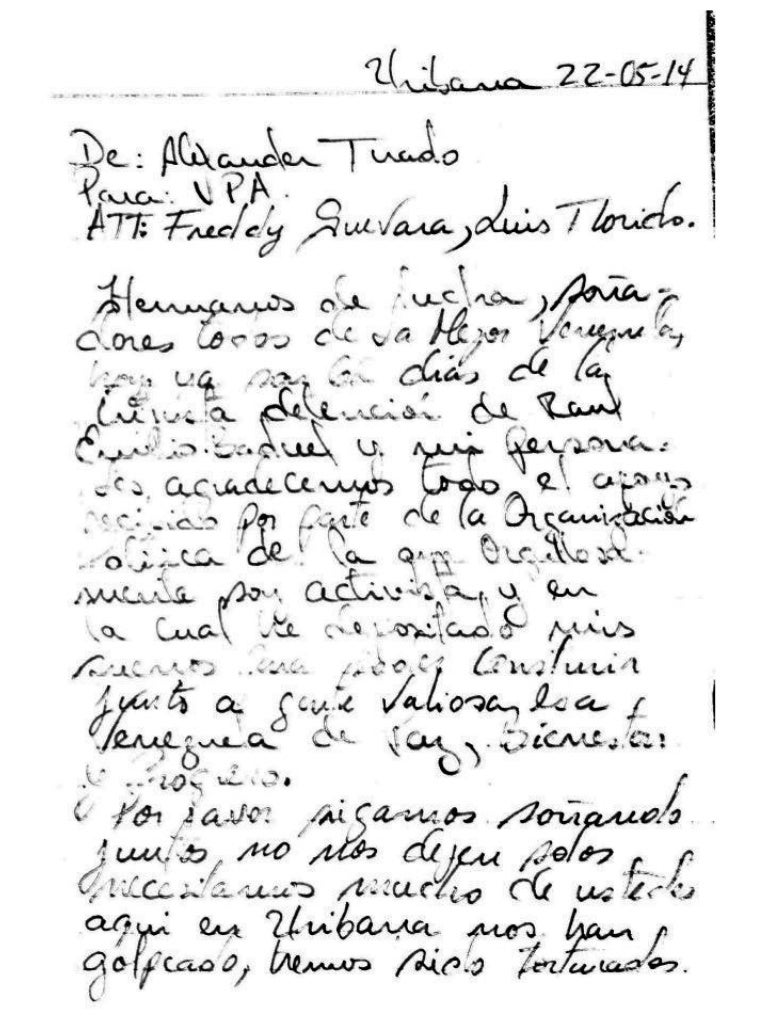 Uribana 22-05-14
De: Alexander Tirado
Para: VPA.
ATT: Freddy Guevara, Luis Florido.
Hermanos de lucha, soña-
dores todos de la Mejor Venezuela,
hoy ya son dias de la
injusta detención de Raul
Emilio Baduel y mi persona.
Les agradecemos todo el apoyo
recibido por parte de la Organización
Politica de la que Orgullosa-
mente soy activista, y en
la cual he depositado mis
sueños para poder Construir
junto a gente valiosa, esa
Venezuela de Paz, Bienestar
y Progreso.
Por favor sigamos soñando
juntos, no nos dejen solos
necesitamos mucho de ustedes
aqui en Uribana nos han
golpeado, hemos sido torturados.